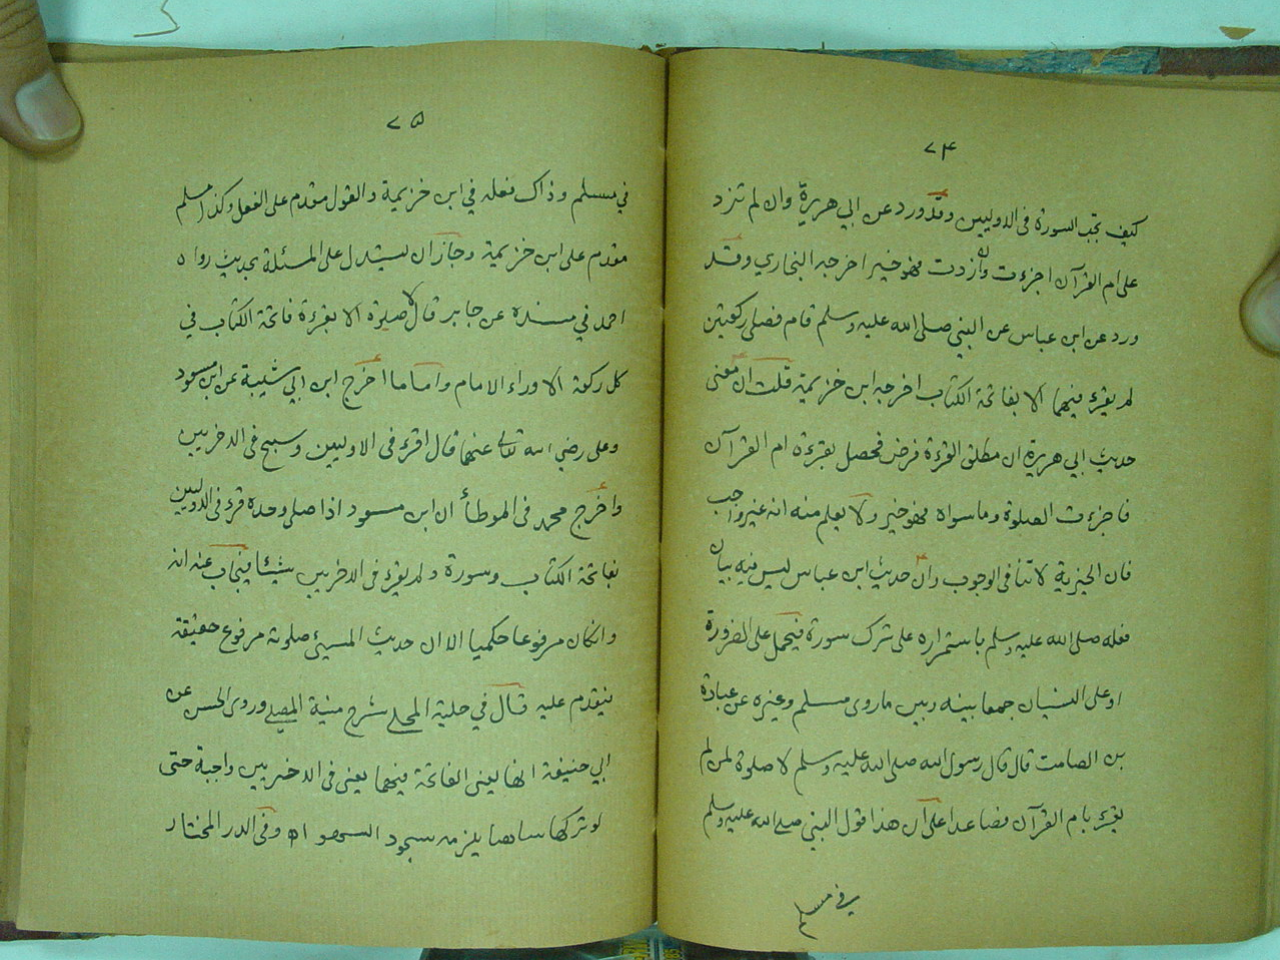 ٧٤
كيف تجب السورة فى الاوليين وقد ورد عن ابي هريرة وان لم تزد
على ام القرآن اجزءت وان زدت فهو خير اخرجه البخاري وقد
ورد عن ابن عباس عن النبي صلى الله عليه وسلم قام فصلى ركعتين
لم يقرء فيهما الا بفاتحة الكتاب اخرجه ابن خزيمة قلت ان معنى
حديث ابي هريرة ان مطلق القرءة فرض فحصل بقرءة ام القرآن
فاجزءت الصلوة وما سواه فهو خير ولا يعلم منه انه غير واجب
فان الخيرية لا تنافى الوجوب وان حديث ابن عباس ليس فيه بيان
فعله صلى الله عليه وسلم باستمراره على ترك سورة فيحمل على الضرورة
او على النسيان جمعا بينه وبين ما روى مسلم وغيره عن عبادة
بن الصامت قال قال رسول الله صلى الله عليه وسلم لا صلوة لمن لم
يقرء بام القرآن فصاعدا على ان هذا قول النبي صلى الله عليه وسلم
في مسلم
٧٥
في مسلم وذاك فعله في ابن خزيمة والقول مقدم على الفعل وكذا مسلم
مقدم على ابن خزيمة وجاز ان يستدل على المسئلة بحديث رواه
احمد في مسنده عن جابر قال لا صلوة الا بقرءة فاتحة الكتاب في
كل ركعة الا وراء الامام واما ما اخرج ابن ابي شيبة عن ابن مسعود
وعلى رضي الله تعالى عنهما قال اقرء فى الاوليين وسبح فى الاخريين
واخرج محمد فى الموطأ ان ابن مسعود اذا صلى وحده قرء فى الاوليين
بفاتحة الكتاب وسورة ولم يقرء فى الاخريين شيئا فيجاب عنه انه
وانكان مرفوعا حكميا الا ان حديث المسيئ صلوته مرفوع حقيقة
فيتقدم عليه قال في حلية المحلى شرح منية المصلى وروى الحسن عن
ابي حنيفة انها يعنى الفاتحة فيهما يعنى فى الاخريين واجبة حتى
لو تركها ساهيا يلزمه سجود السهو اه وفى الدر المختار